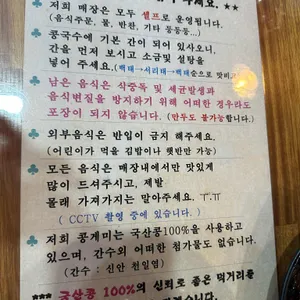 주세요. ★★
저희 매장은 모두 셀프로 운영됩니다.
(음식주문, 물, 반찬, 기타 등등등...)
콩국수에 기본 간이 되어 있사오니,
간을 먼저 보시고 소금및 설탕을
넣어 주세요.(백태→서리태→흑태순으로 맛비
남은 음식은 식중독 및 세균발생과
음식변질을 방지하기 위해 어떠한 경우라도
포장이 되지 않습니다. (만두도 불가능합니다.)
외부음식은 반입이 금지 해주세요.
(어린이가 먹을 김밥이나 햇반만 가능)
모든 음식은 매장내에서만 맛있게
많이 드셔주시고, 제발
몰래 가져가지는 말아주세요. ㅜ.ㅠ
( CCTV 촬영 중에 있습니다. )
저희 콩게미는 국산콩100%을 사용하고
있으며, 간수외 어떠한 첨가물도 없습니다.
(간수 : 신안 천일염)
*** 국산콩 100%의 신뢰로 좋은 먹거리를
겠습니다.